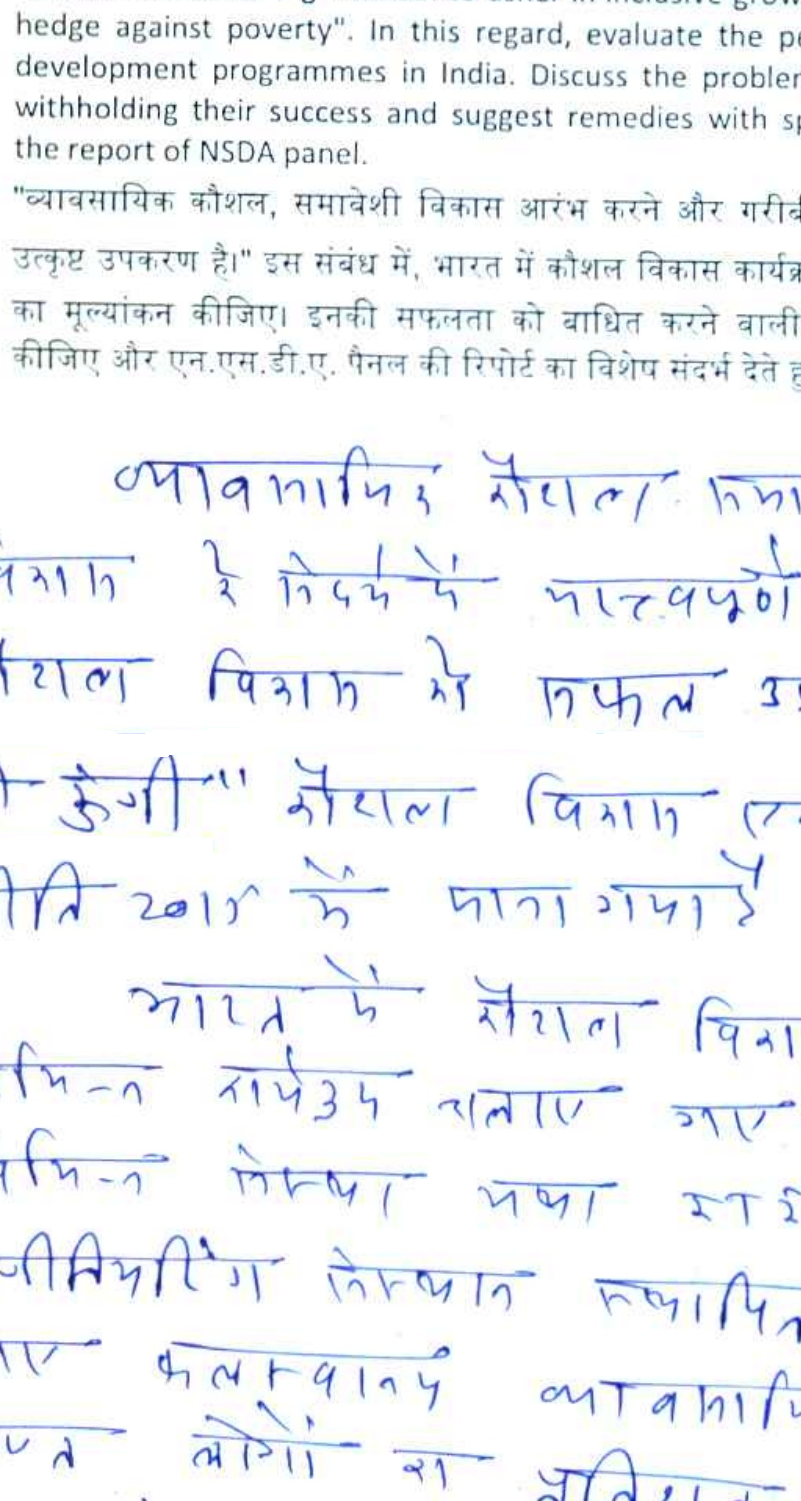 hedge against poverty". In this regard, evaluate the pe
development programmes in India. Discuss the probler
withholding their success and suggest remedies with sp
the report of NSDA panel.
"व्यावसायिक कौशल, समावेशी विकास आरंभ करने और गरीबी
उत्कृष्ट उपकरण है।" इस संबंध में, भारत में कौशल विकास कार्यक्र
का मूल्यांकन कीजिए। इनकी सफलता को बाधित करने वाली
कीजिए और एन.एस.डी.ए. पैनल की रिपोर्ट का विशेष संदर्भ देते हु
व्यावसायिक कौशल समा
विकास के संदर्भ में महत्त्वपूर्ण
कौशल विकास को सफल
कौशल विकास
नीति 2015 में माना गया है
भारत में कौशल विका
विभिन्न कार्यक्रम चलाए गए
विभिन्न संस्था यथा
इंजीनियरिंग संस्थान स्थापित
फलस्वरूप व्यावसायि
लोगों का प्रतिशत